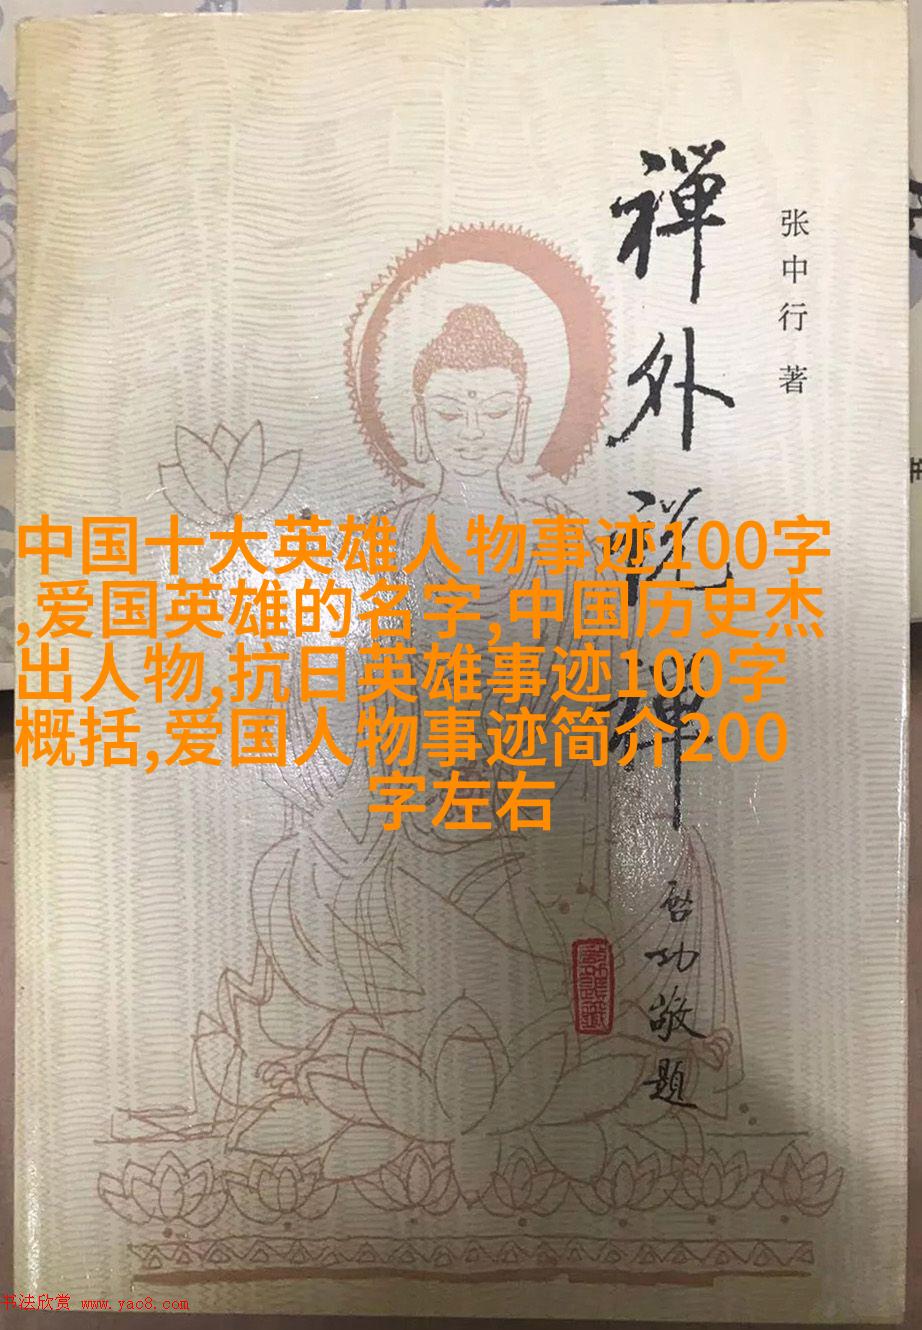 张中行 著
禅外说禅
启功敬题
中国十大英雄人物事迹100字
,爱国英雄的名字,中国历史杰
出人物,抗日英雄事迹100字
概括,爱国人物事迹简介200
字左右
书法欣赏 www.yac8.com